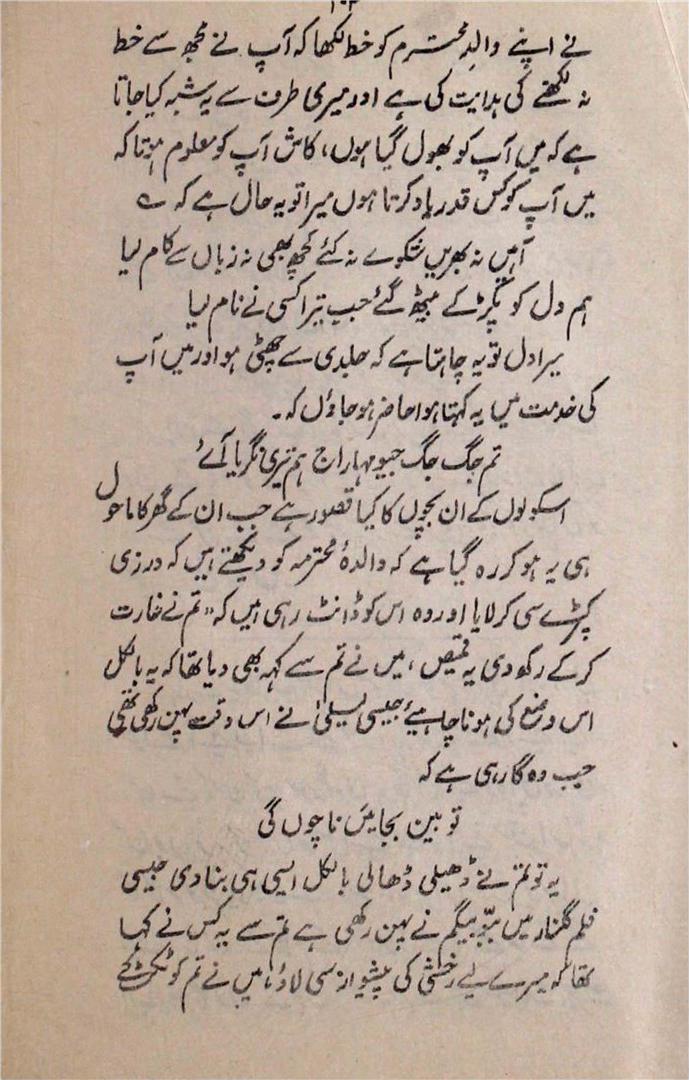 نے اپنے والدِ محترم کو خط لکھا کہ آپ نے مجھ سے خط
نہ لکھنے کی ہدایت کی ہے اور میری طرف سے یہ شبہ کیا جاتا
ہے کہ میں آپ کو بھول گیا ہوں، کاش آپ کو معلوم ہوتا کہ
میں آپ کو کس قدر یاد کرتا ہوں میرا تو یہ حال ہے کہ ؎
آہیں نہ بھریں شکوے نہ کئے کچھ بھی نہ زباں سے کام لیا
ہم دل کو پکڑ کے بیٹھ گئے جب تیرا کسی نے نام لیا
میرا دل تو یہ چاہتا ہے کہ جلدی سے چھٹی ہو اور میں آپ
کی خدمت میں یہ کہتا ہوا حاضر ہو جاؤں کہ۔
تم جگ جگ جیو مہاراج ہم تیری نگریا آئے
اسکولوں کے ان بچوں کا کیا قصور ہے جب ان کے گھر کا ماحول
ہی یہ ہو کر رہ گیا ہے کہ والدۂ محترمہ کو دیکھتے ہیں کہ درزی
کپڑے سی کر لایا اور وہ اس کو ڈانٹ رہی ہیں کہ "تم نے غارت
کر کے رکھ دی یہ قمیص، میں نے تم سے کہہ بھی دیا تھا کہ یہ بالکل
اس وضع کی ہونا چاہیئے جیسی لیلیٰ نے اس وقت پہن رکھی تھی
جب وہ گا رہی ہے کہ
تو بین بجا میں ناچوں گی
یہ تو تم نے ڈھیلی ڈھالی بالکل ایسی ہی بنا دی جیسی
فلم گلنار میں ببّو بیگم نے پہن رکھی ہے تم سے یہ کس نے کہا
تھا کہ میرے لیے رخشی کی پیشواز سی لاؤ، میں نے تم کو ٹکٹ کے